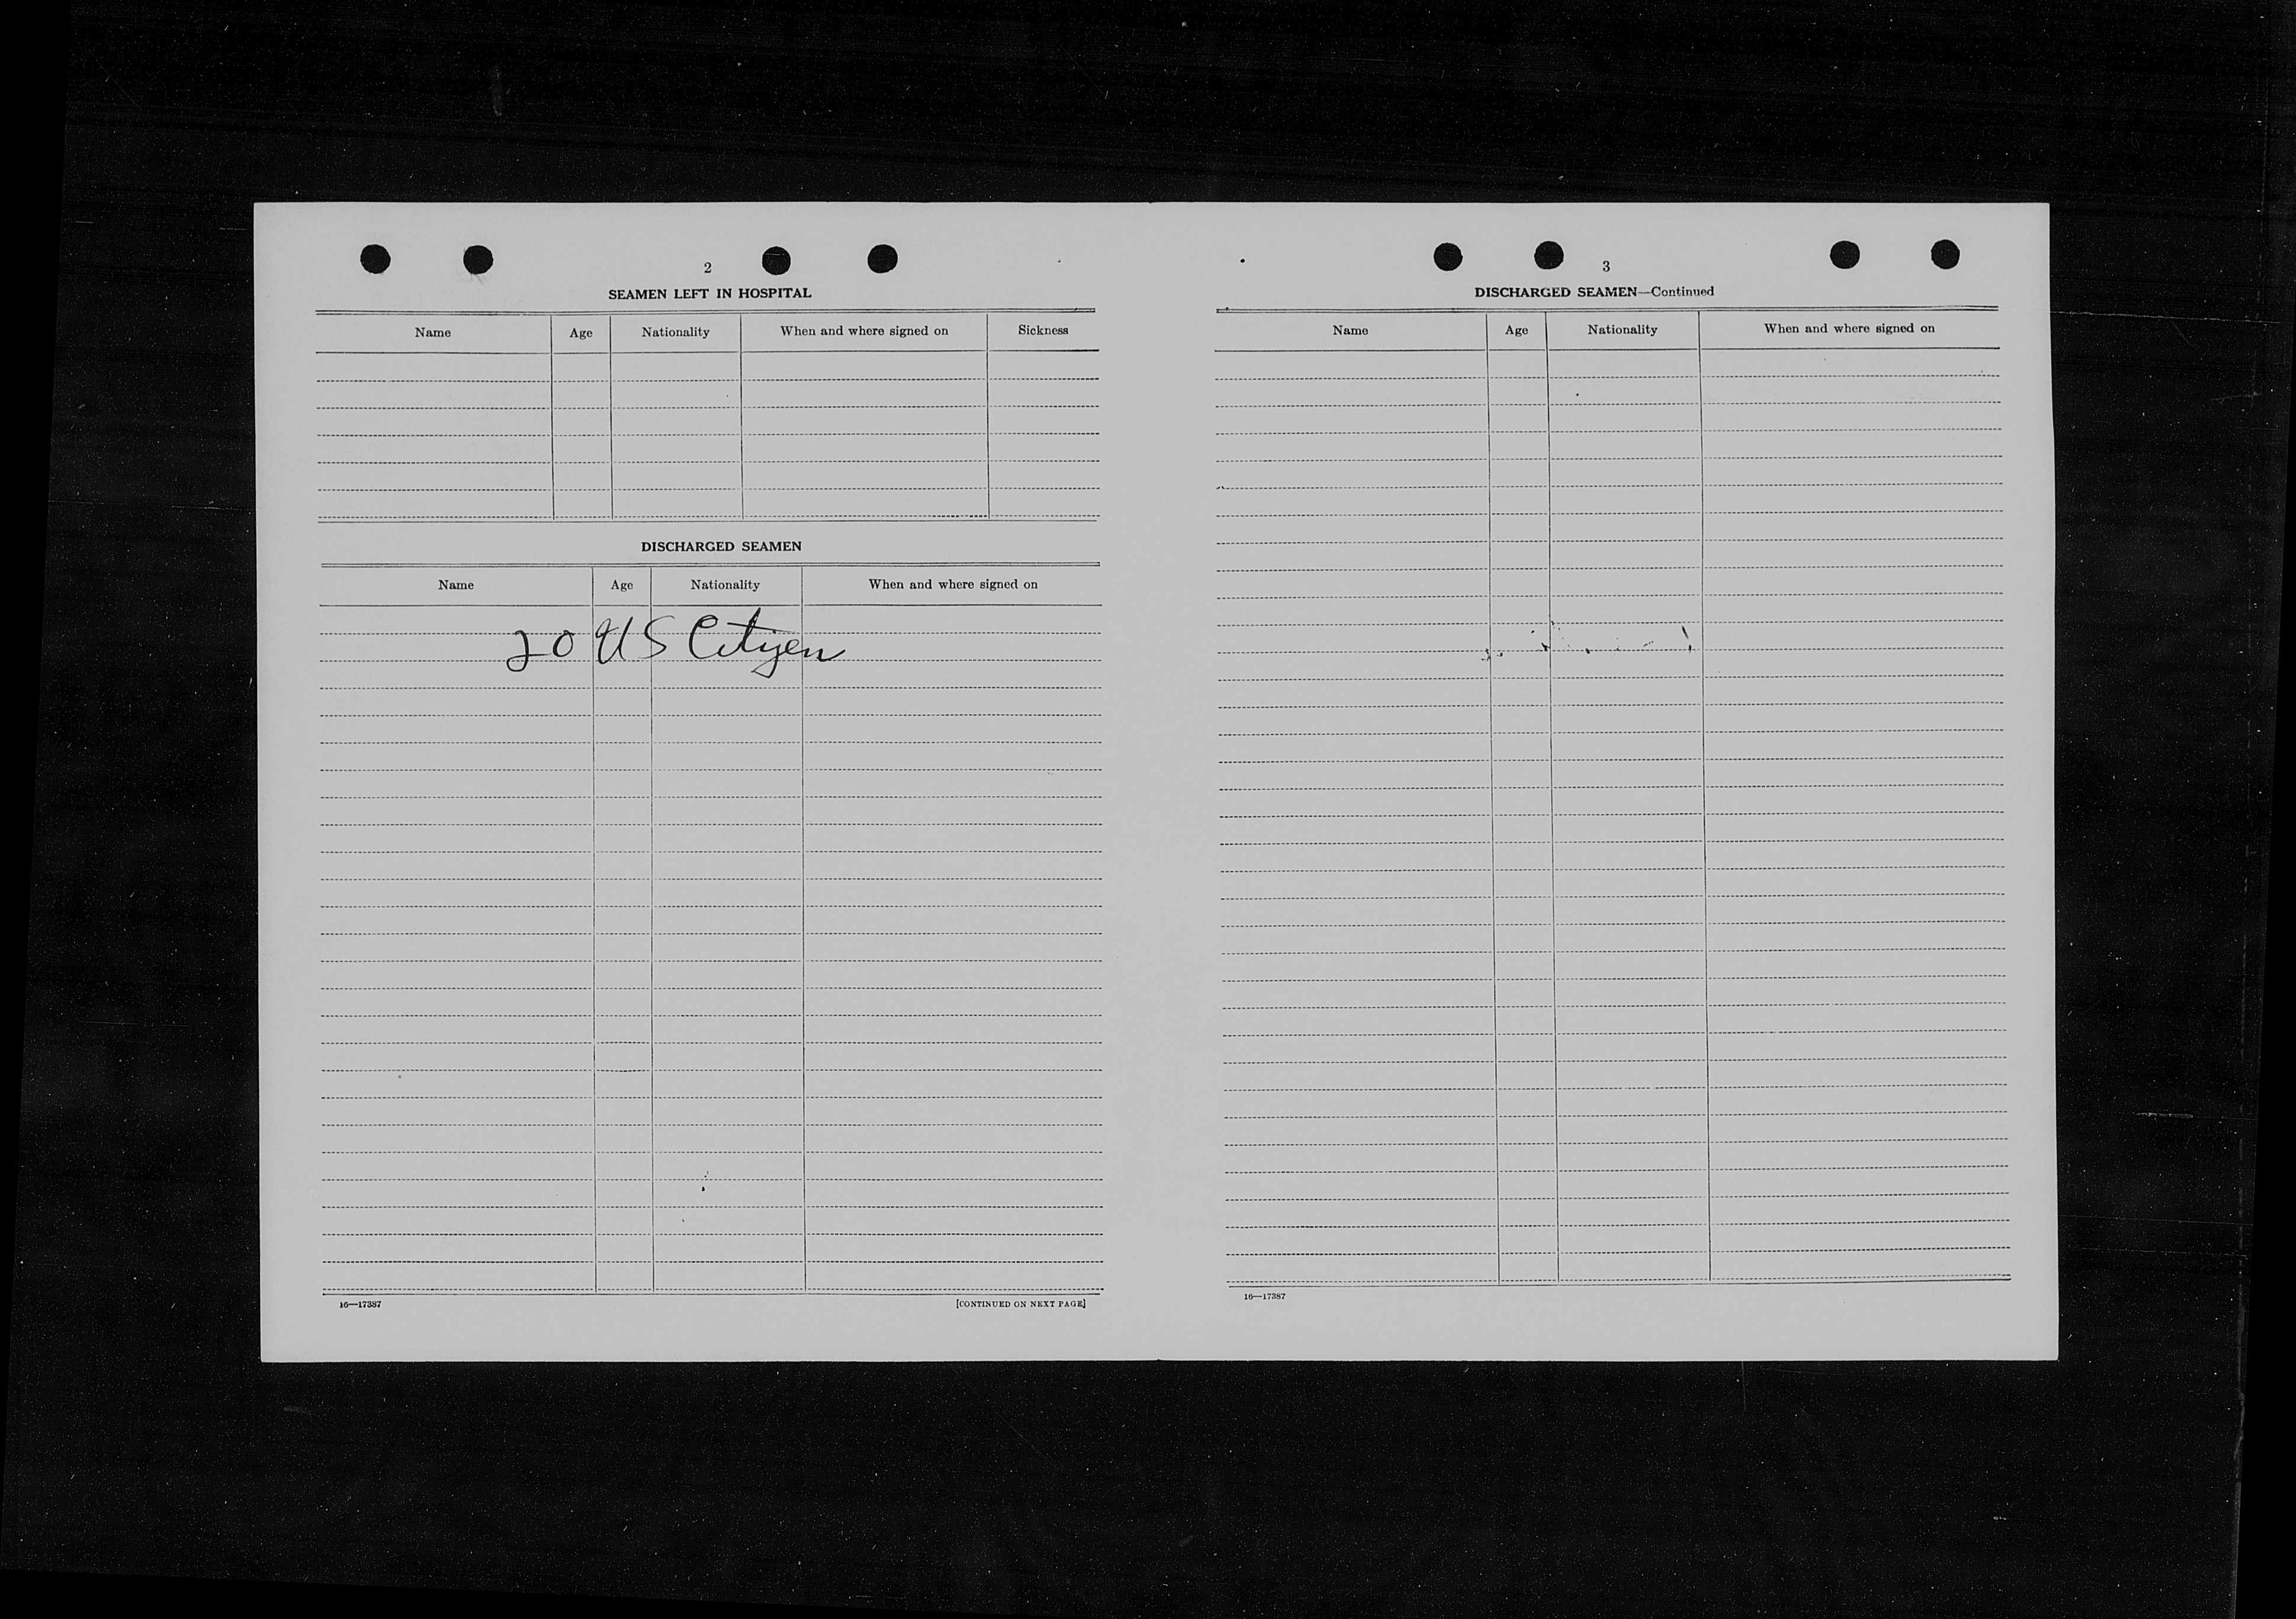 2
SEAMEN LEFT IN HOSPITAL
Name Age Nationality When and where signed on Sickness
DISCHARGED SEAMEN
Name Age Nationality When and where signed on
20 US Citizen
16—17387 [CONTINUED ON NEXT PAGE]
3
DISCHARGED SEAMEN—Continued
Name Age Nationality When and where signed on
16—17387